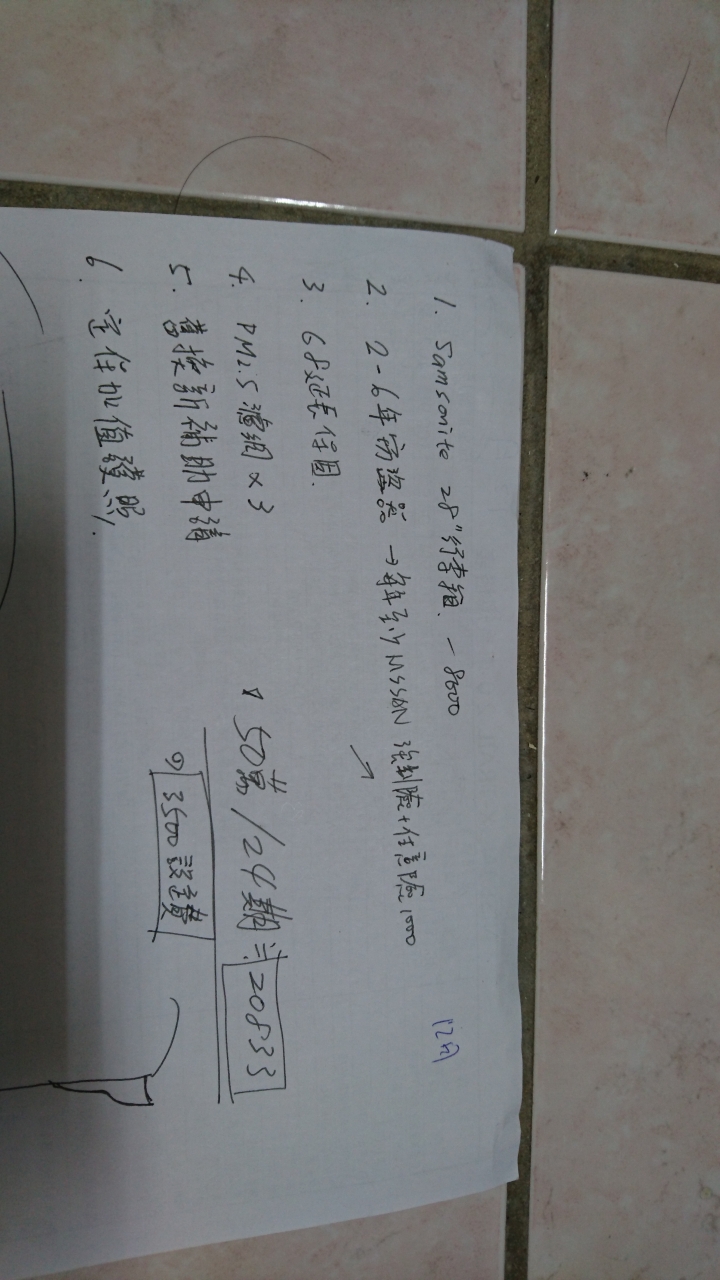 1. Samsonite 28"行李箱. - 8500
2. 2-6年防盜器 → 每年至少 MSSDN 強制險+任意險1000
3. G8延長保固.
4. PM2.5濾網 x3
5. 舊換新補助申請
6. 定保加值
12切
50萬/24期 20833
3500設定費